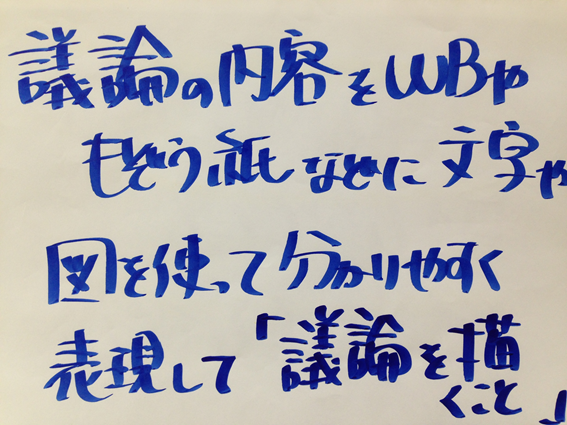 議論の内容をWBや
もぞう紙などに文字や
図を使って分かりやすく
表現して「議論を描
くこと」